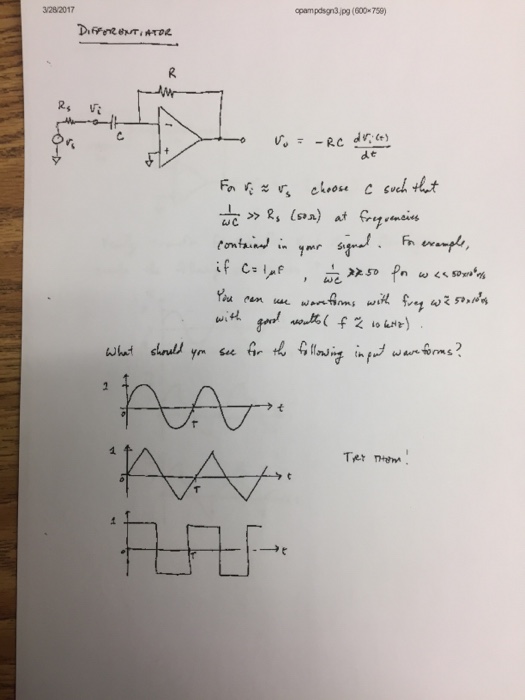 3/28/2017 opampdsgn3.jpg (600×759)
DIFFERENTIATOR
R
Rs vi
C
vs
-
+
vo = -RC dvi(t)/dt
For vi ≈ vs choose C such that
1/ωC >> Rs (50Ω) at frequencies
contained in your signal. For example,
if C = 1μF, 1/ωC >> 50 for ω <<
You can use waveforms with freq
with good results (f ≲ 10 kHz).
What should you see for the following input waveforms?
1
0 T t
1
0 T t
TRY THEM!
1
0 T t